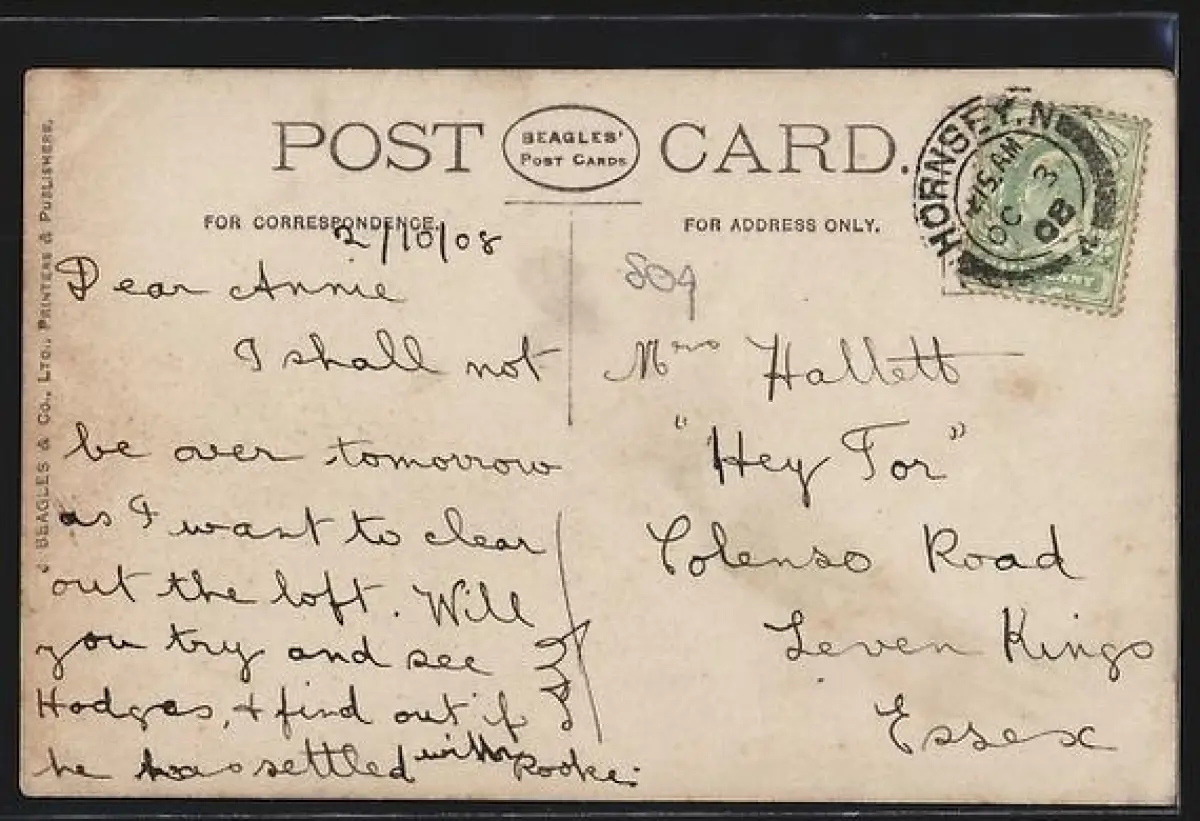 POST CARD.
BEAGLES'
POST CARDS
FOR CORRESPONDENCE.
FOR ADDRESS ONLY.
J. BEAGLES & Co., LTD., PRINTERS & PUBLISHERS.
HORNSEY. N
15 AM
OC 3
08
2/10/08
Dear Annie
I shall not
be over tomorrow
as I want to clear
out the loft. Will
you try and see
Hodges, & find out if
he has settled with Rooke.
Mrs Hallett
"Hey Tor"
Colenso Road
Seven Kings
Essex